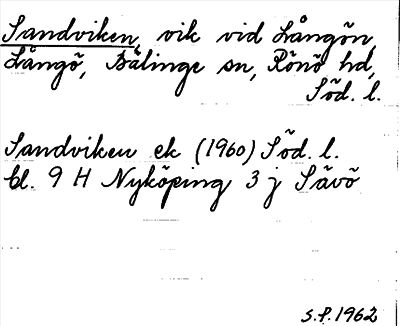 Sandviken, vik vid Långön
Långö, Bälinge sn, Rönö hd,
Söd. l.
Sandviken ek (1960) Söd. l.
bl. 9 H Nyköping 3 j Sävö
S.P. 1962